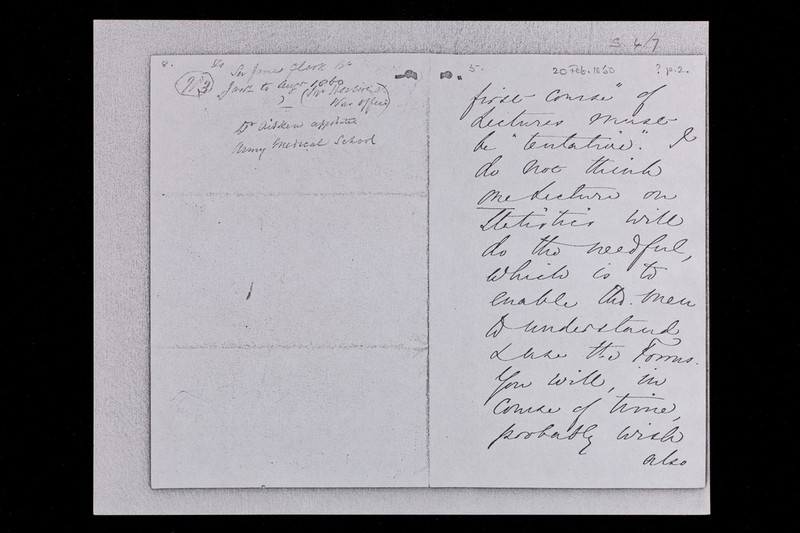 S 4/7
8.
Sir James Clark Bt
No 3
Jany to Augt 1860
War Office)
Dr Aitken appointed
Army Medical School
5.
20 Feb. 1860
? p. 2.
first course" of
Lectures must
be "tentative". I
do not think
one Lecture on
Statistics will
do the needful,
which is to
enable the men
to understand
& use the Forms.
You will, in
course of time,
probably wish
also